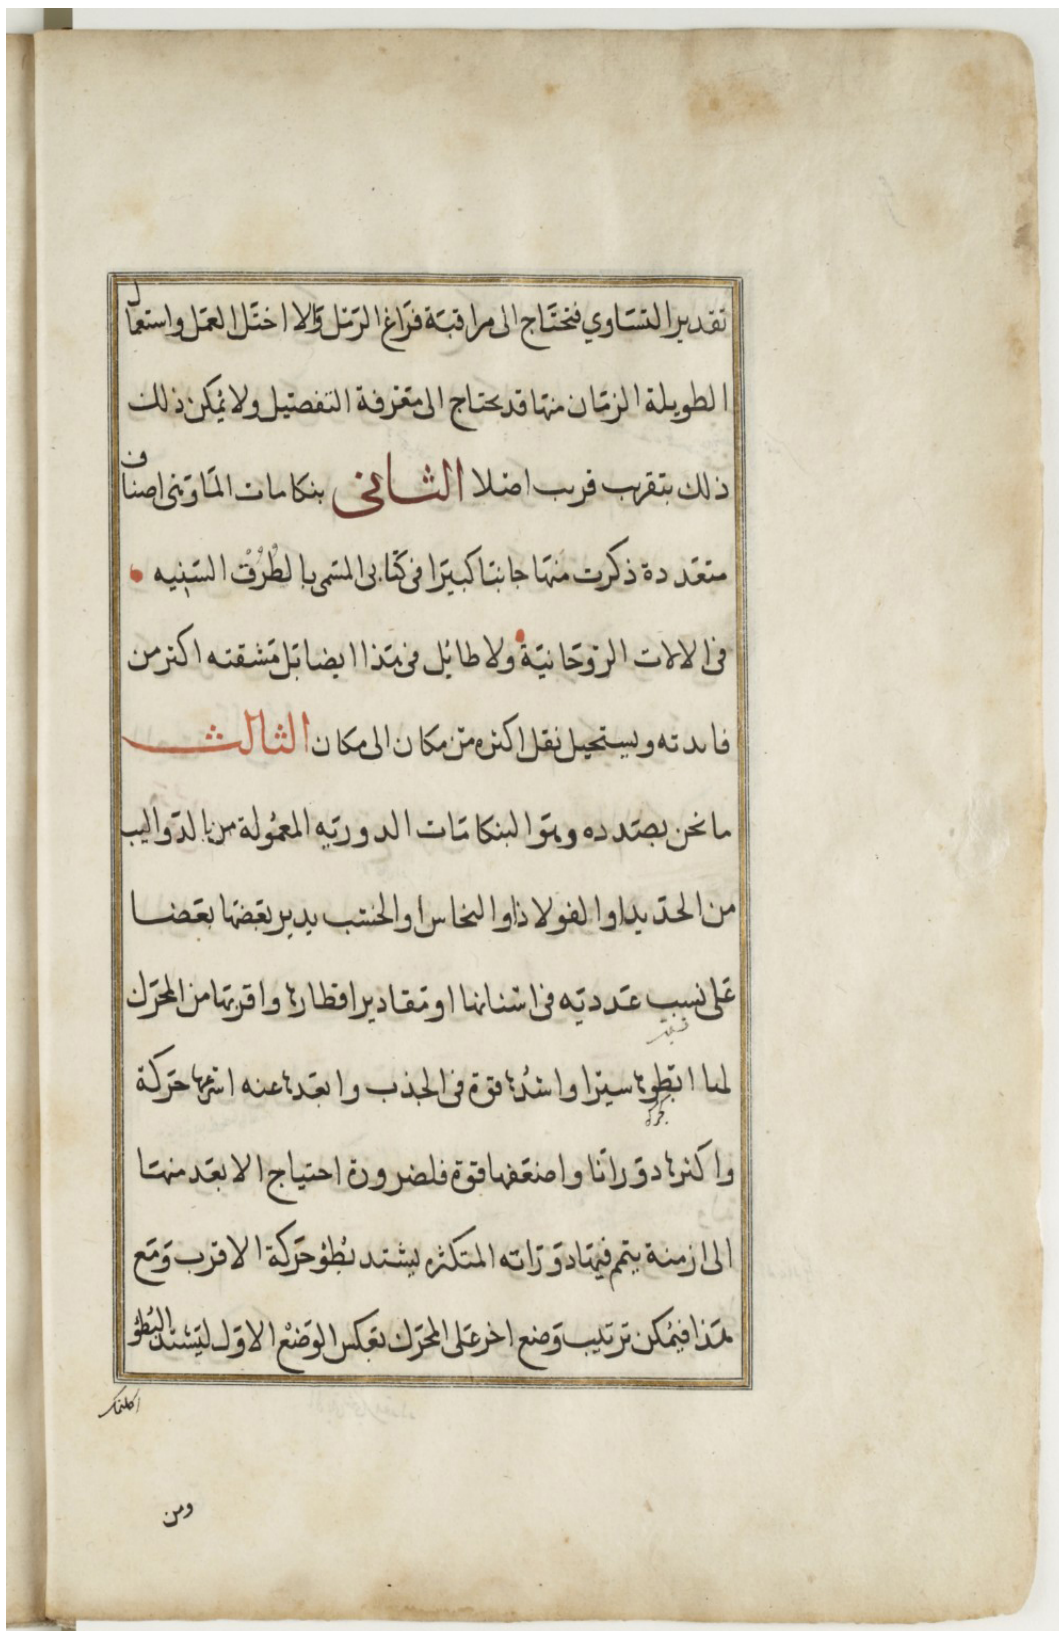 تقدير التساوي فتحتاج الى مراقبة فراغ الرمل والا اختل العمل واستعمال
الطويلة الزمان منها قد يحتاج الى معرفة التفصيل ولا يمكن ذلك
ذلك بتقريب قريب اصلا الثاني بنكامات الما وهى اصناف
متعددة ذكرت منها جانبا كبيرا فى كتابى المسمى بالطُرُق السَنِيه
فى الالات الروحانية ولا طائل فى هذا ايضا بل مشقته اكثر من
فايدته ويستحيل نقل اكثره من مكان الى مكان الثالث
ما نحن بصدده وهو البنكامات الدوريه المعمُولة من بالدواليب
من الحديد او الفولاذ او النحاس او الخشب يدير بعضها بعضا
على نسب عدديه فى اسنانها او مقادير اقطارها واقربها من المحرك
لها ابطوها سيرا واشدُها قوة فى الجذب وابعدها عنه اسرعها حركة
واكثرها دورانا واضعفها قوة فلضرورة احتياج الابعد منها
الى ازمنة يتم فيها دوراته المتكثره يشتد بُطؤ حركة الاقرب ومع
هذا فيُمكن ترتيب وضع اخر على المحرك بعكس الوضْع الاول ليشتد البُطؤ
ومن